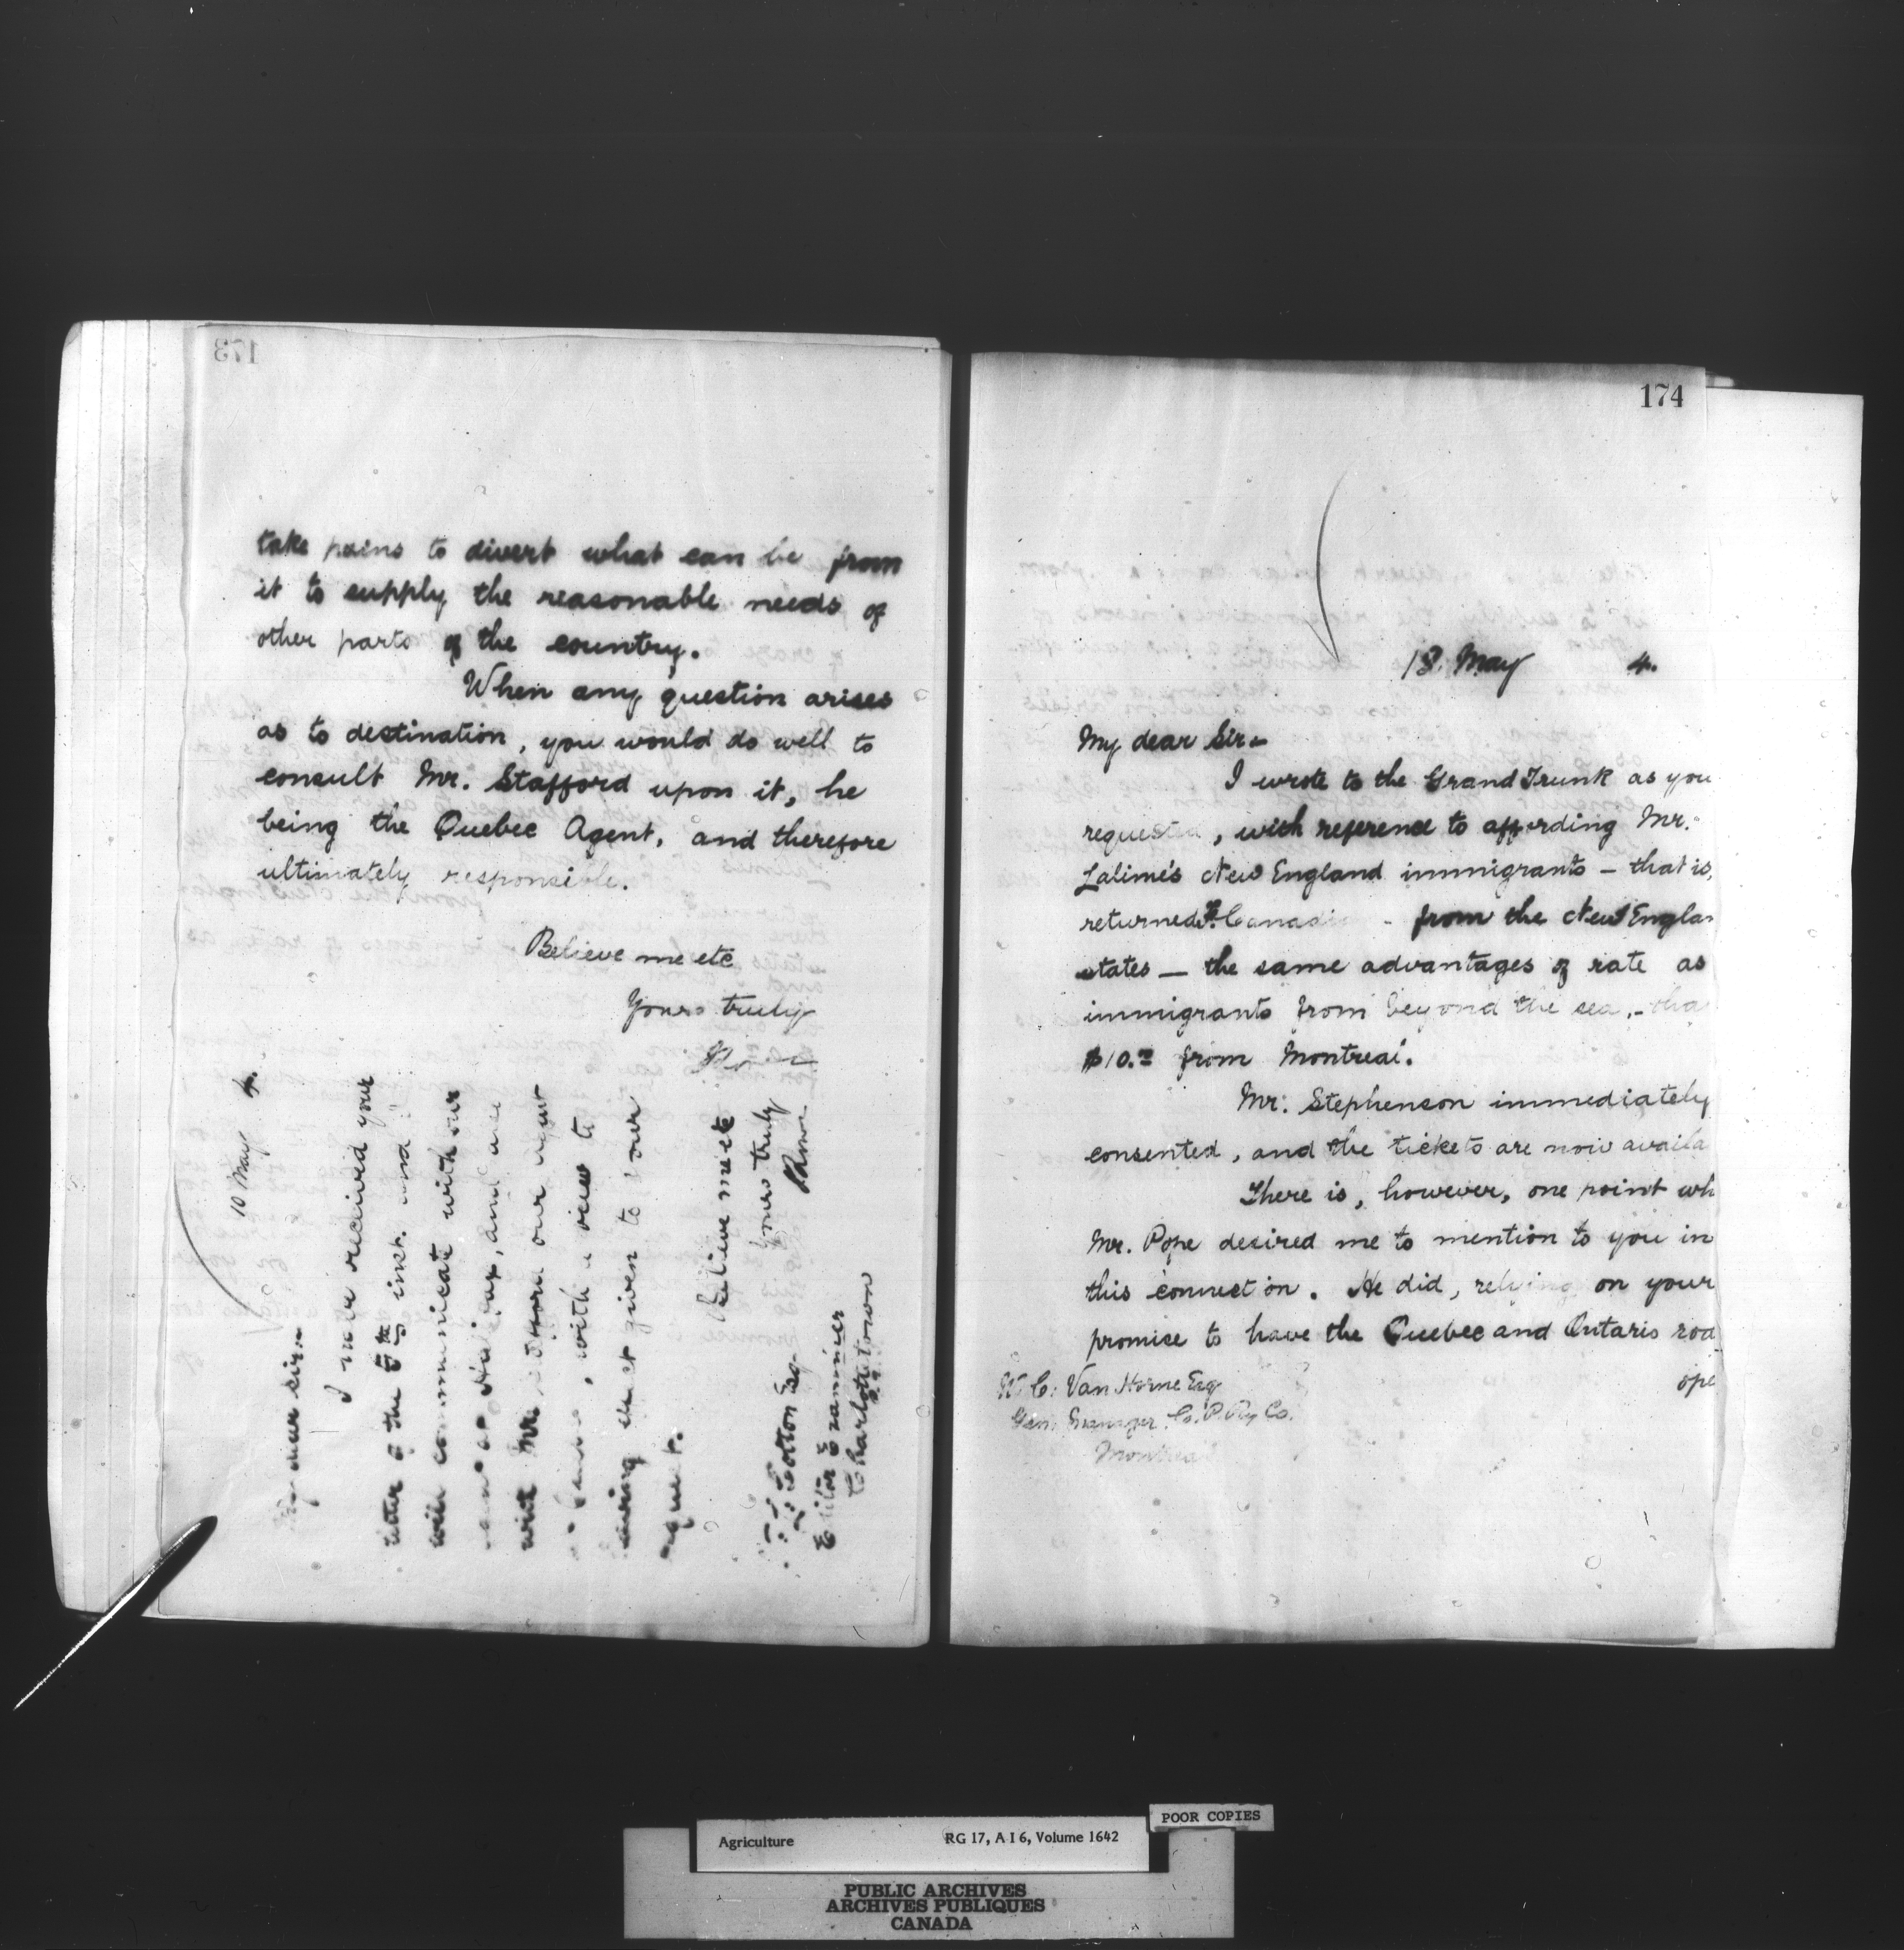 173
take pains to divert what can be from
it to supply the reasonable needs of
other parts of the country.
When any question arises
as to destination, you would do well to
consult Mr. Stafford upon it, he
being the Quebec Agent, and therefore
ultimately responsible.
Believe me etc
Yours truly
10 May 4.
My dear sir.
I have received your
letter of the 5th inst. and
will communicate with our
agent at Halifax, and also
with Mr. our agent
, with a view to
having effect given to your
request.
Believe me etc
Yours truly
Cotton Esq.
Editor Examiner
Charlottetown
174
13. May 4.
My dear Sir-
I wrote to the Grand Trunk as you
requested, with reference to affording Mr.
Lalime's New England immigrants - that is,
returned Fr. Canadi - from the New Englan
states - the same advantages of rate as
immigrants from beyond the sea, - tha
$10.00 from Montreal.
Mr. Stephenson immediately
consented, and the tickets are now availa
There is, however, one point wh
Mr. Pope desired me to mention to you in
this connection. He did, relying on your
promise to have the Quebec and Ontario road
ope
W. C. Van Horne Esq
Gen. Manager Ca. P. Ry Co.
Montreal
POOR COPIES
Agriculture RG 17, A I 6, Volume 1642
PUBLIC ARCHIVES
ARCHIVES PUBLIQUES
CANADA